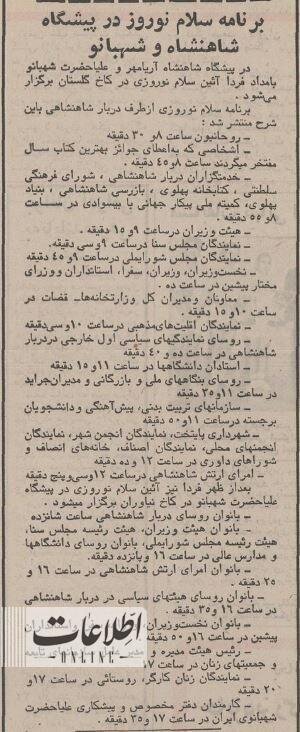 برنامه سلام نوروز در پیشگاه
شاهنشاه و شهبانو
در پیشگاه شاهنشاه آریامهر و علیاحضرت شهبانو
بامداد فردا آئین سلام نوروزی در کاخ گلستان برگزار
میشود.
برنامه سلام نوروزی ازطرف دربار شاهنشاهی باین
شرح منتشر شد:
ـ روحانیون ساعت ۸و ۳۰ دقیقه
ـ اشخاصی که به‌اعطای جوائز بهترین کتاب سال
مفتخر میگردند ساعت ۸و۴۵ دقیقه.
ـ خدمتگزاران دربار شاهنشاهی، شورای فرهنگی
سلطنتی، کتابخانه پهلوی، بازرسی شاهنشاهی، بنیاد
پهلوی، کمیته ملی پیکار جهانی با بیسوادی در ساعت
۸و ۵۵ دقیقه.
ـ هیئت وزیران درساعت ۹و ۱۵ دقیقه.
ـ نمایندگان مجلس سنا درساعت ۹وسی دقیقه.
ـ نمایندگان مجلس شورایملی درساعت ۹و ۴۵ دقیقه
ـ نخست‌وزیران، وزیران، سفرا، استانداران ووزرای
مختار پیشین در ساعت ده.
ـ معاونان ومدیران کل وزارتخانه‌ها، قضات در
ساعت ۱۰و ۱۵ دقیقه.
ـ نمایندگان اقلیت‌های‌مذهبی درساعت ۱۰وسی‌دقیقه
ـ روسای نمایندگیهای سیاسی اول خارجی دردربار
شاهنشاهی در ساعت ده و ۴۰ دقیقه
ـ استادان دانشگاهها در ساعت ۱۱و ۱۵ دقیقه
ـ روسای بنگاههای ملی و بازرگانی و مدیران‌جراید
در ساعت ۱۱و۳۵ دقیقه
ـ سازمانهای تربیت بدنی، پیش‌آهنگی و دانشجویان
برجسته درساعت ۱۱و۵۰ دقیقه
ـ شهرداری پایتخت، نمایندگان انجمن شهر، نمایندگان
انجمنهای محلی، نمایندگان اصناف، خانه‌های انصاف و
شوراهای داوری در ساعت ۱۲ و ده دقیقه
ـ امرای ارتش شاهنشاهی درساعت ۱۲وسی‌وپنج دقیقه
بعداز ظهر فردا نیز آئین سلام نوروزی در پیشگاه
علیاحضرت شهبانو در کاخ نیاوران برگزار میشود.
ـ بانوان روسای دربار شاهنشاهی ساعت شانزده
ـ بانوان هیئت وزیران، هیئت رئیسه مجلس سنا،
هیئت رئیسه مجلس شورایملی، بانوان روسای دانشگاهها
و مدارس عالی در ساعت ۱۶ و پانزده دقیقه.
ـ بانوان امرای ارتش شاهنشاهی در ساعت ۱۶ و
۲۵ دقیقه.
ـ بانوان روسای هیئتهای سیاسی در دربار شاهنشاهی
در ساعت ۱۶ و ۳۵ دقیقه.
ـ بانوان نخست‌وزیران
پیشین در ساعت ۱۶و ۵۰ دقیقه
ـ رئیس هیئت مدیره و تابعه
و جمعیتهای زنان در ساعت ۱۷
ـ نمایندگان زنان کارگر، روستائی در ساعت ۱۷و
۲۰ دقیقه
ـ کارمندان دفتر مخصوص و پیشکاری علیاحضرت
شهبانوی ایران در ساعت ۱۷ و ۳۵ دقیقه.
اطلاعات